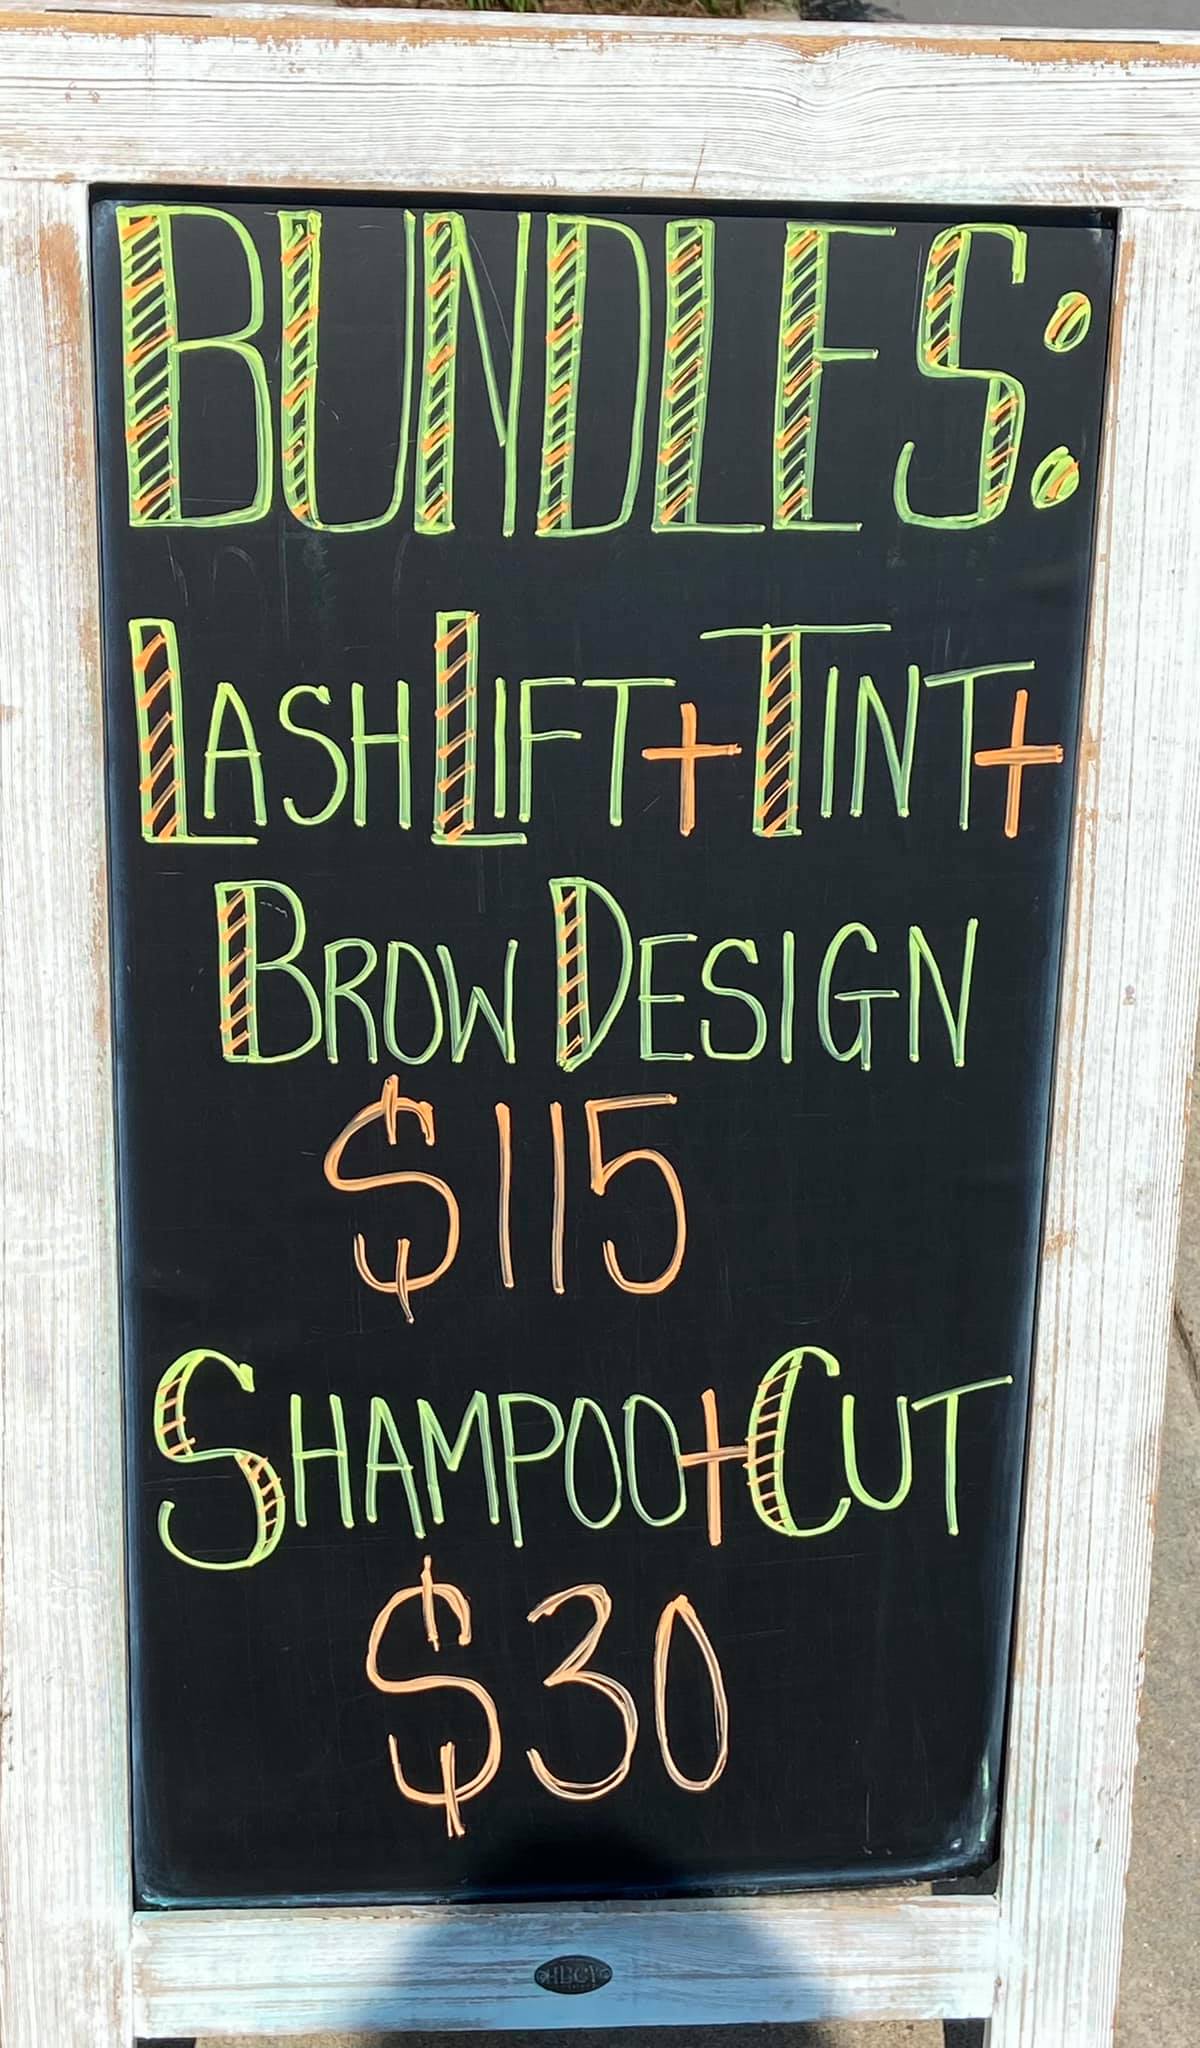 BUNDLES:
LASH LIFT + TINT +
BROW DESIGN
$115
SHAMPOO + CUT
$30
HBCY